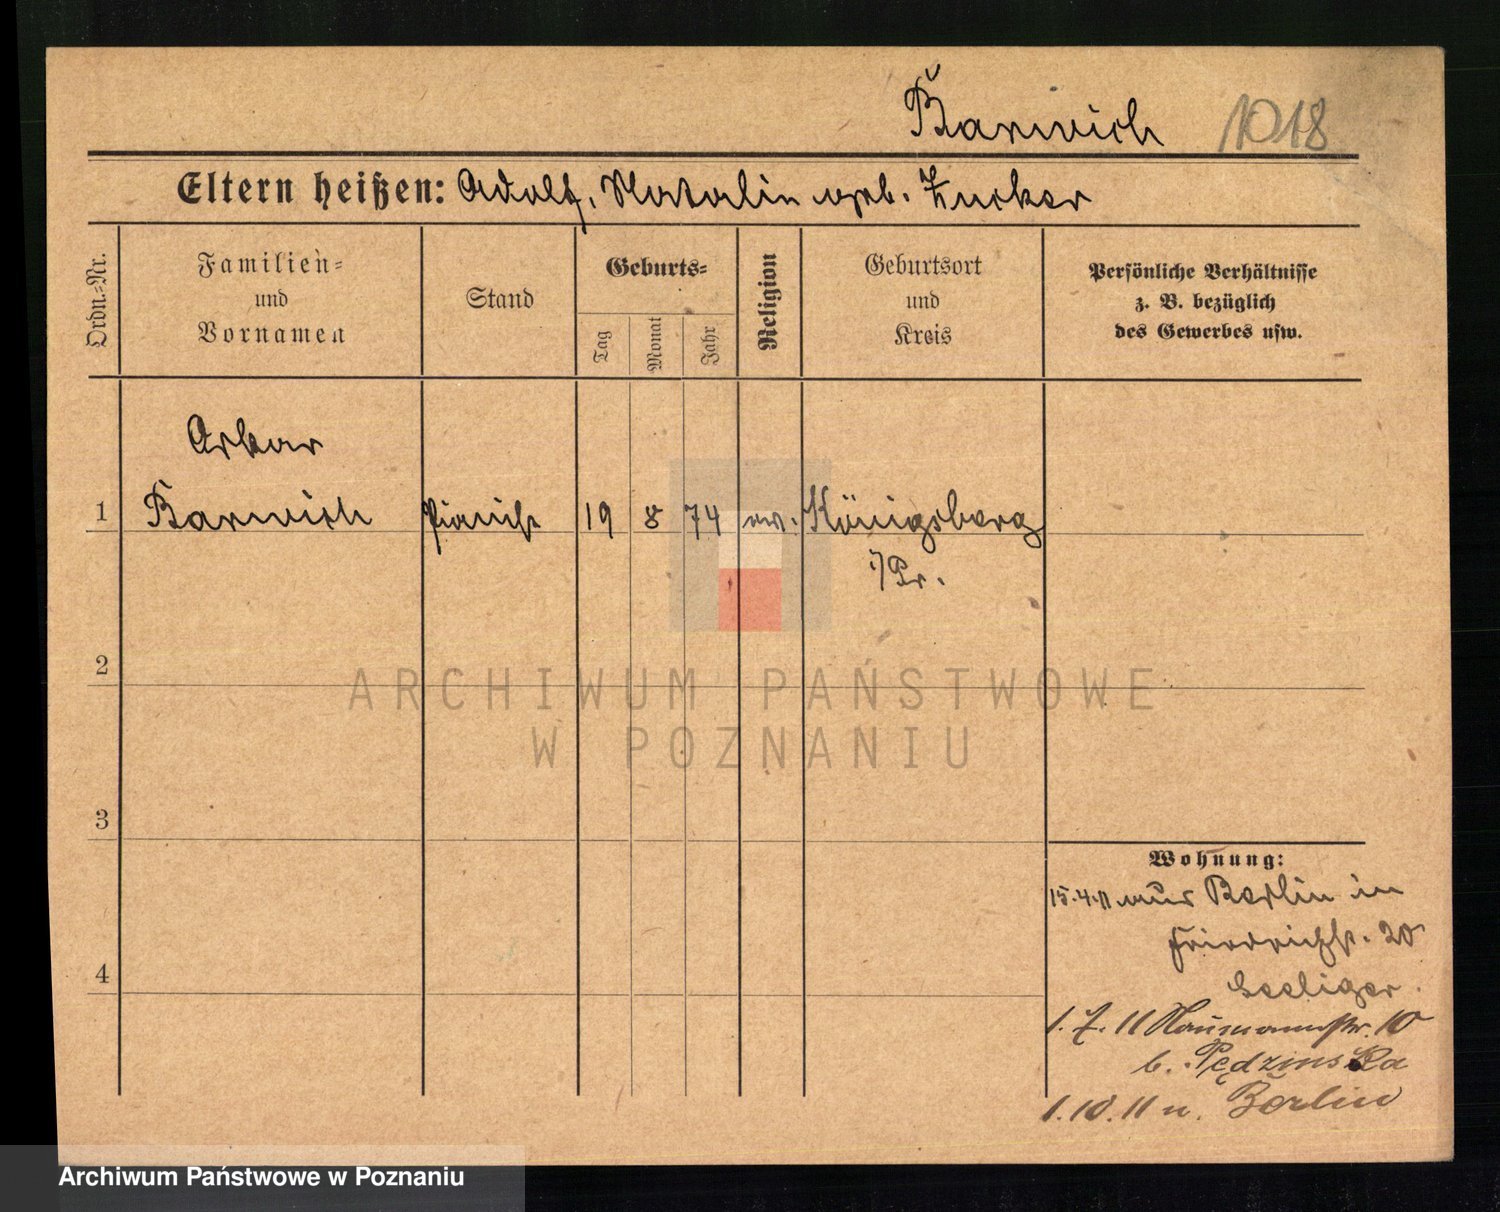 Barwich 1018
Eltern heißen: Adolf, Natalie geb. Zucker
Ordn.-Nr.
Familien-
und
Vornamen
Stand
Geburts-
Tag
Monat
Jahr
Religion
Geburtsort
und
Kreis
Persönliche Verhältnisse
z. B. bezüglich
des Gewerbes usw.
Oskar
1 Barwich Pianist 19 8 74 ev. Königsberg
i/Pr.
2
3
4
Wohnung:
15.4.11 aus Berlin in
Friedrichstr. 20
Seeliger.
1. 7. 11 Naumannstr. 10
b. Pędzinska
1. 10. 11 n. Berlin
ARCHIWUM PAŃSTWOWE
W POZNANIU
Archiwum Państwowe w Poznaniu